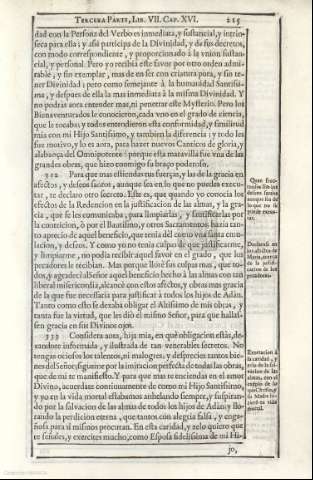 TERCERA PARTE, LIB. VII. CAP. XVI. 215
dad con la Persona del Verbo es inmediata, y sustancial, y intrin-
seca para ella; y assi participa de la Divinidad, y de sus decretos,
con modo correspondiente, y proporcionado à la vnion sustan-
cial, y personal. Pero yo recibì este favor por otro orden admi-
rable, y sin exemplar, mas de en ser con criatura pura, y sin te-
ner Divinidad; pero como semejante à la humanidad Santissi-
ma, y despues de ella la mas inmediata à la misma Divinidad. Y
no podràs aora entender mas, ni penetrar este Mysterio. Pero los
Bienaventurados le conocieron, cada vno en el grado de ciencia,
que le tocaba; y todos entendieron esta conformidad, y similitud
mia con mi Hijo Santissimo, y tambien la diferencia; y todo les
fue motivo, y lo es aora, para hazer nuevos Canticos de gloria, y
alabança del Omnipotente: porque esta maravilla fue vna de las
grandes obras, que hizo conmigo su braço poderoso.
332 Para que mas estiendas tus fuerças, y las de la gracia en
afectos, y deseos santos, aunque sea en lo que no puedes execu-
tar, te declaro otro secreto. Este es, que quando yo conocia los
efectos de la Redencion en la justificacion de las almas, y la gra-
cia, que se les comunicaba, para limpiarlas, y santificarlas por
la contricion, ò por el Bautismo, y otros Sacramentos: hazia tan-
to aprecio de aquel beneficio, que tenia del como vna santa emu-
lacion, y deseos. Y como yo no tenia culpa de que justificarme,
y limpiarme, no podia recibir aquel favor en el grado, que los
pecadores le recibian. Mas porque llorè sus culpas mas, que to-
dos, y agradeci al Señor aquel beneficio hecho à las almas con tan
liberal misericordia, alcancè con estos afectos, y obras mas gracia
de la que fue necessaria para justificar à todos los hijos de Adàn.
Tanto como esto se dexaba obligar el Altissimo de mis obras, y
tanta fue la virtud, que les diò el mismo Señor, para que hallas-
sen gracia en sus Divinos ojos.
333 Considera aora, hija mia, en què obligacion estàs, de-
xandote informada, y ilustrada de tan venerables secretos. No
tengas ociosos los talentos, ni malogres, y desprecies tantos bie-
nes del Señor; sigueme por la imitacion perfecta de todas las obras,
que de mi te manifiesto. Y para que mas te enciendas en el amor
Divino, acuerdate continuamente de como mi Hijo Santissimo,
y yo en la vida mortal estabamos anhelando siempre, y suspiran-
do por la salvacion de las almas de todos los hijos de Adàn, y llo-
rando la perdicion eterna, que tantos con alegria falsa, y enga-
ñosa para si mismos procuran. En esta caridad, y zelo quiero que
te señales, y exercites mucho, como Esposa fidelissima de mi Hi-
jo,